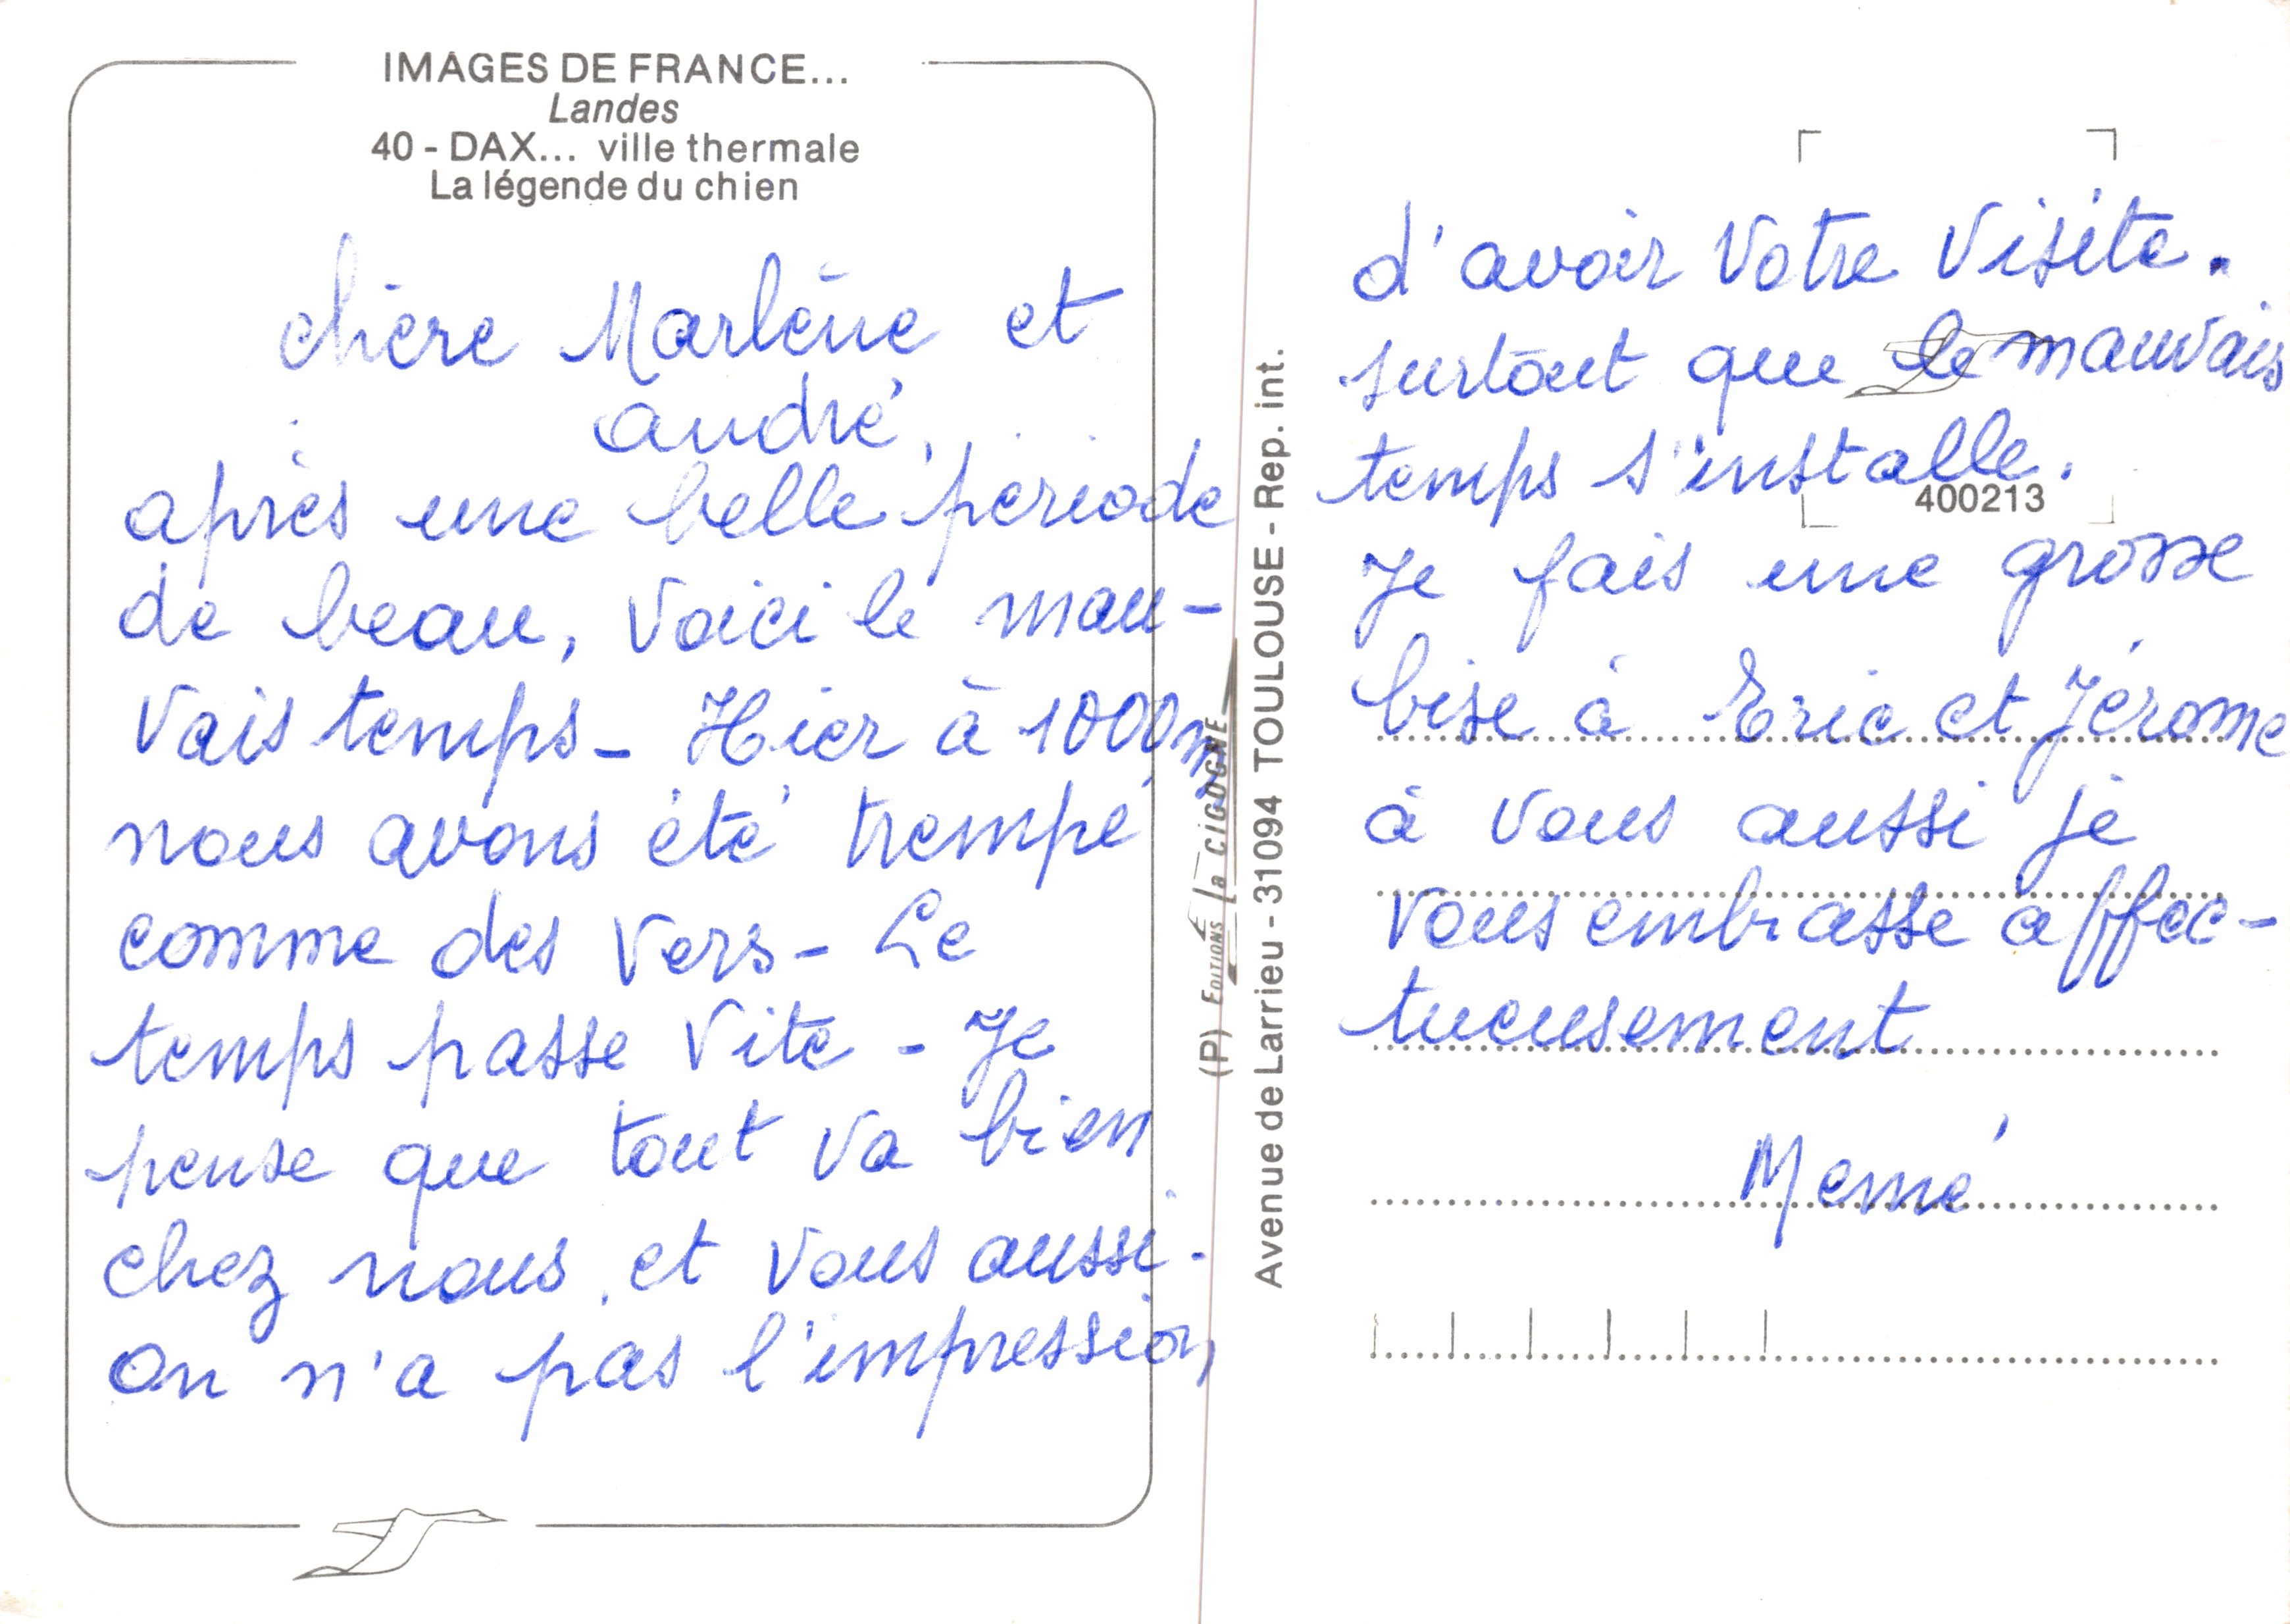 IMAGES DE FRANCE...
Landes
40 - DAX... ville thermale
La légende du chien
chère Marlène et
andré,
après une belle période
de beau, voici le mau-
vais temps - Hier à 1000m
nous avons été trempé
comme des vers - Le
temps passe vite - Je
pense que tout va bien
chez nous, et vous aussi.
On n'a pas l'impression
(P) EDITIONS la CIGOGNE
Avenue de Larrieu - 31094 TOULOUSE - Rep. int.
d'avoir votre visite.
surtout que le mauvais
temps s'installe.
400213
Je fais une grosse
bise à Eric et Jérome
à vous aussi je
vous embrasse affec-
tueusement
Mémé